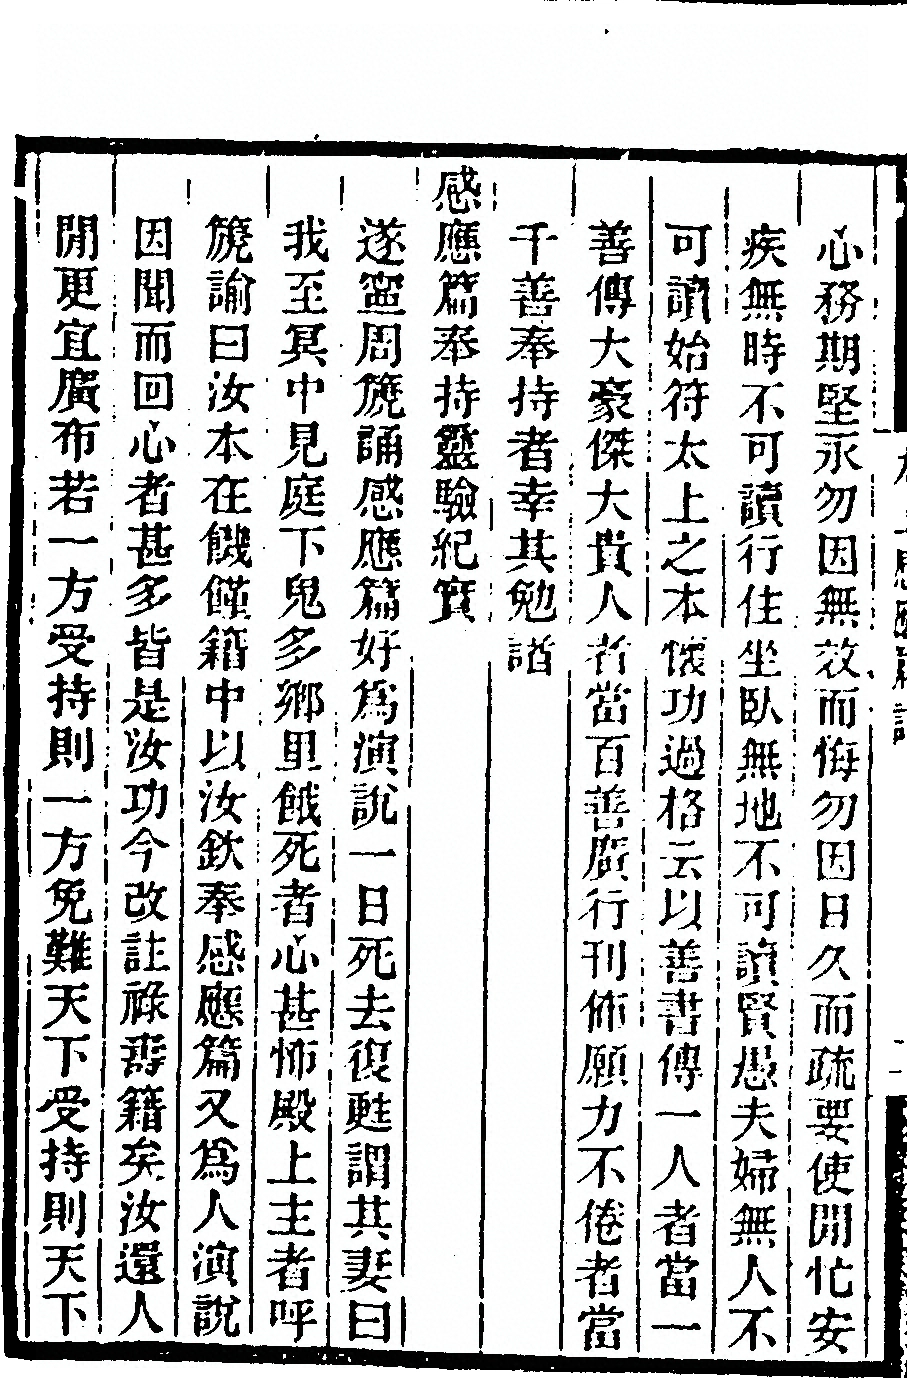 心務期堅永勿因無效而悔勿因日久而疏要使閒忙安
疾無時不可讀行住坐臥無地不可讀賢愚夫婦無人不
可讀始符太上之本懷功過格云以善書傳一人者當一
善傳大豪傑大貴人者當百善廣行刊佈願力不倦者當
千善奉持者幸其勉諸
感應篇奉持靈驗紀實
遂寍周篪誦感應篇好爲演說一日死去復甦謂其妻曰
我至冥中見庭下鬼多鄉里餓死者心甚怖殿上主者呼
篪諭曰汝本在饑饉籍中以汝欽奉感應篇又爲人演說
因聞而回心者甚多皆是汝功今改註祿壽籍矣汝還人
閒更宜廣布若一方受持則一方免難天下受持則天下